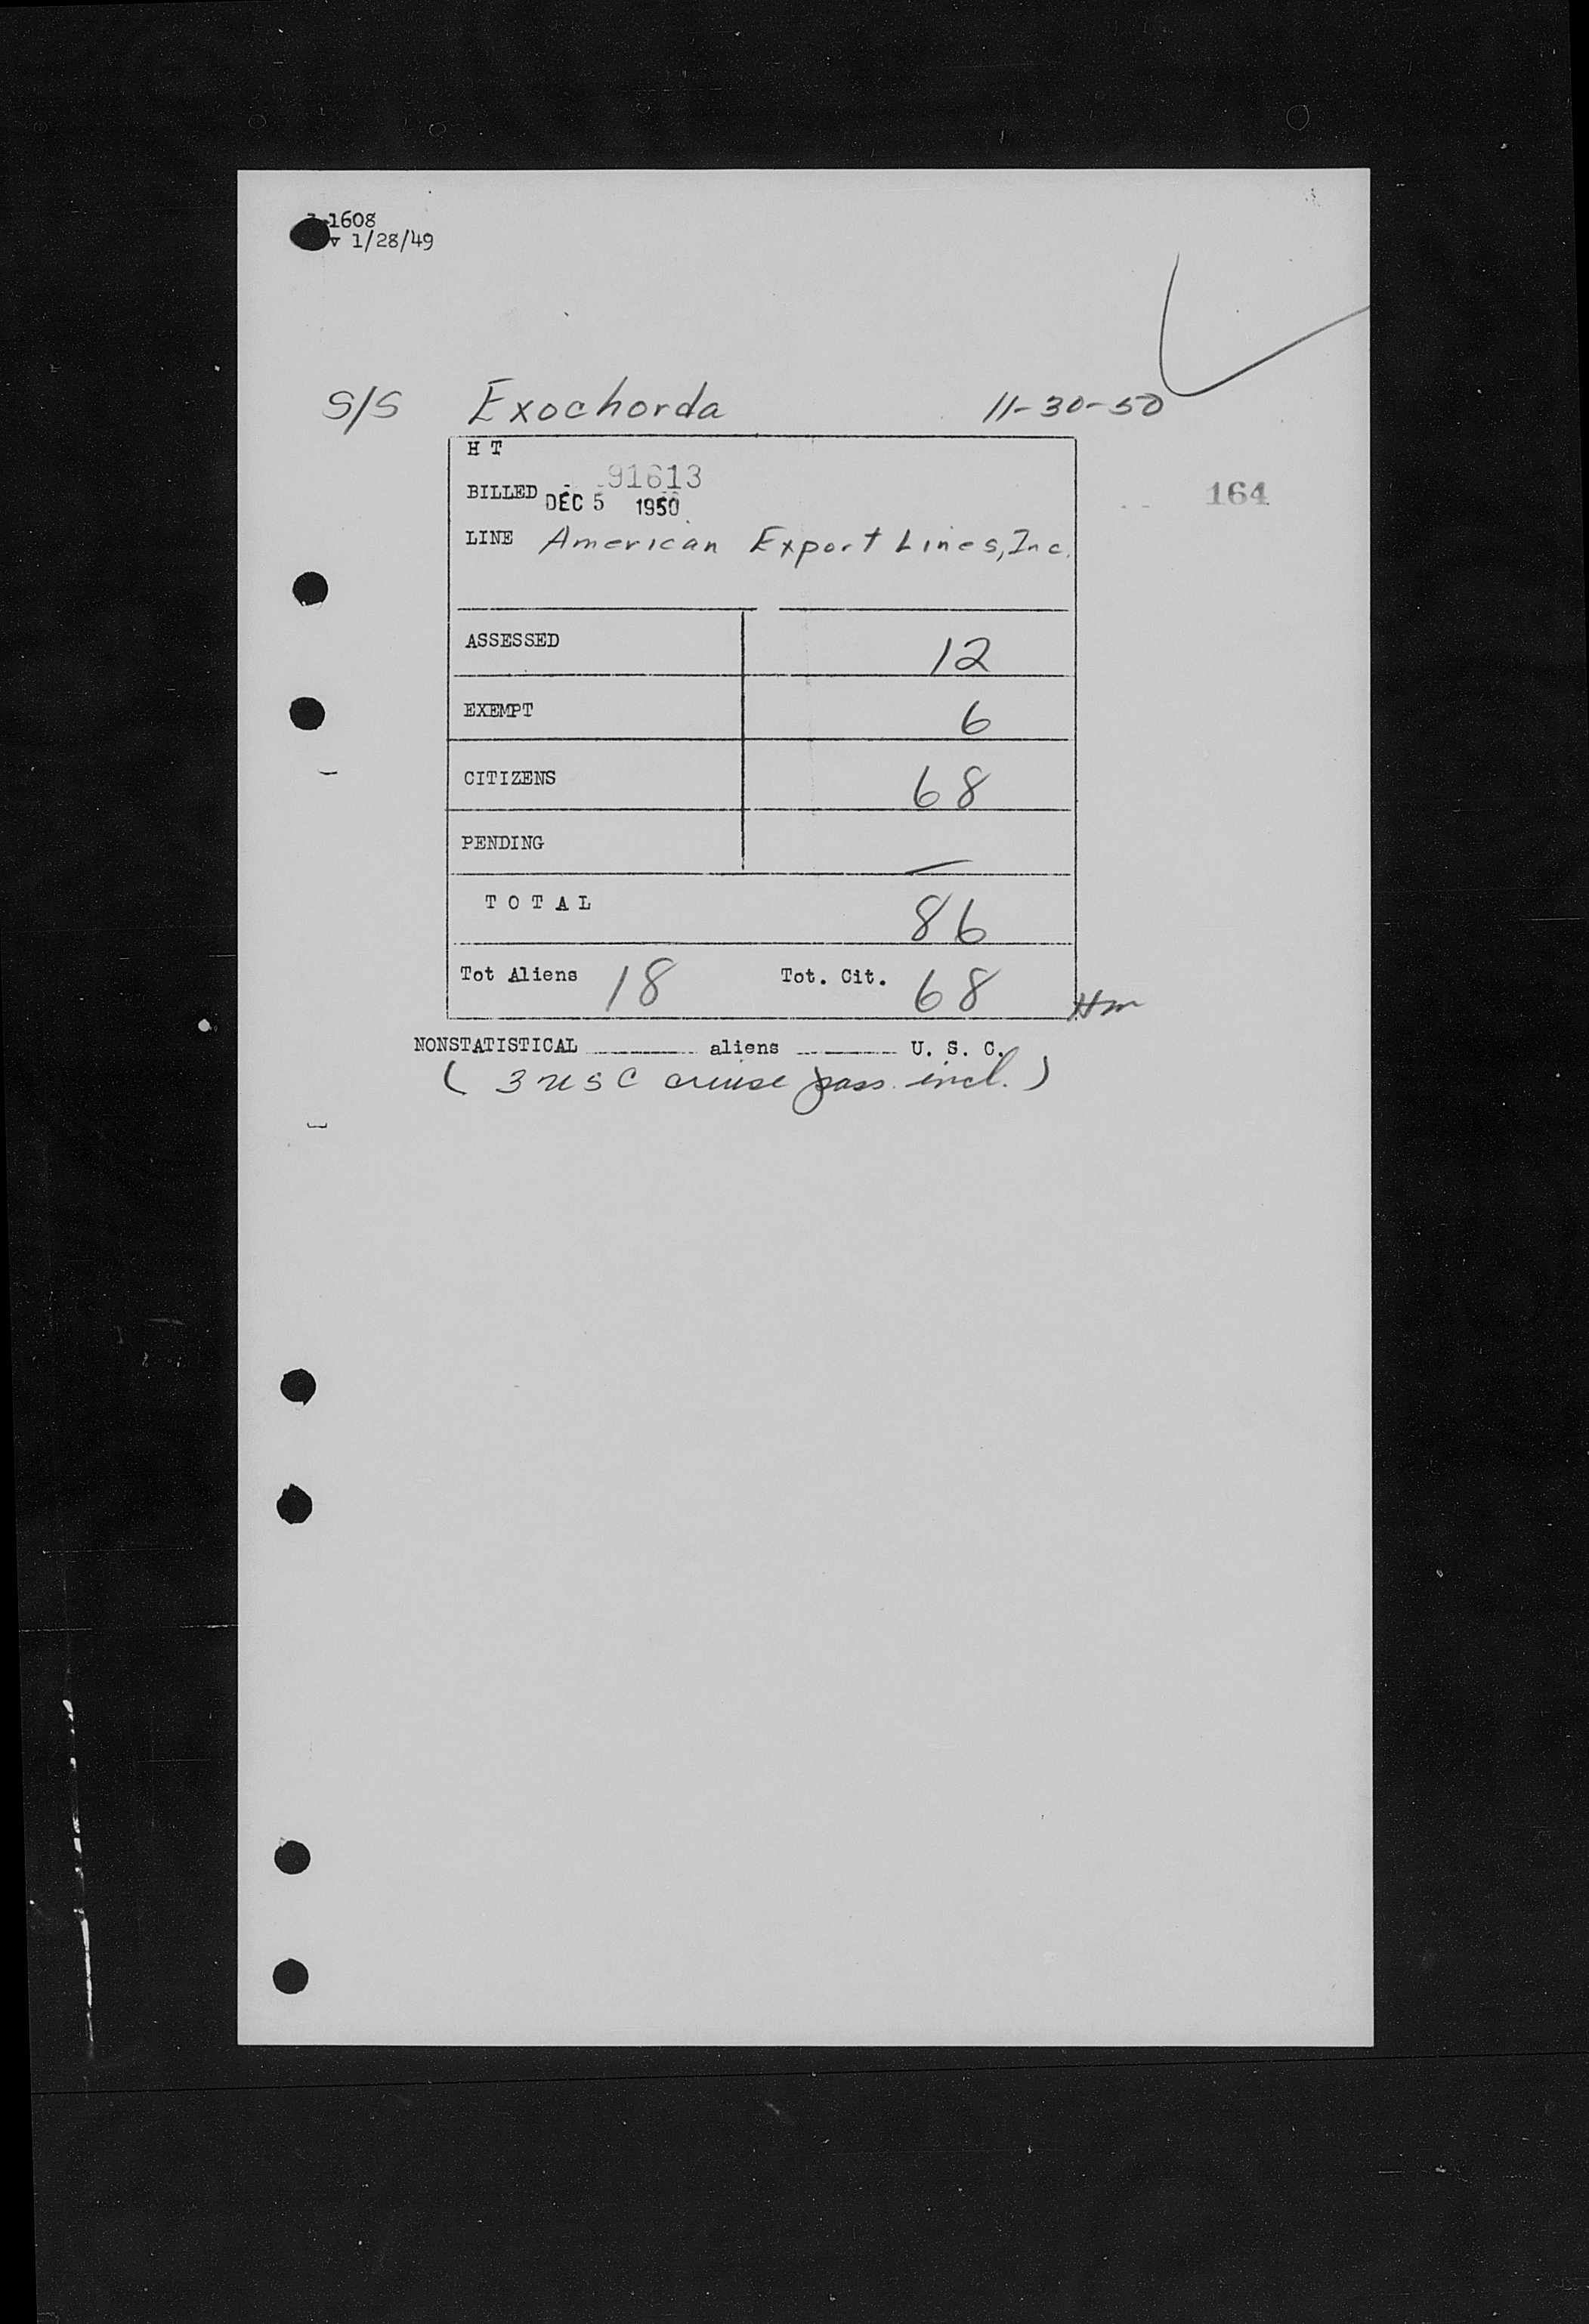 1608
v 1/28/49
S/S Exochorda 11-30-50
H T
91613
BILLED DEC 5 1950
164
LINE American Export Lines, Inc.
ASSESSED 12
EXEMPT 6
CITIZENS 68
PENDING —
T O T A L 86
Tot Aliens 18 Tot. Cit. 68
NONSTATISTICAL ______ aliens ______ U. S. C.
( 3 USC cruise pass. incl. )